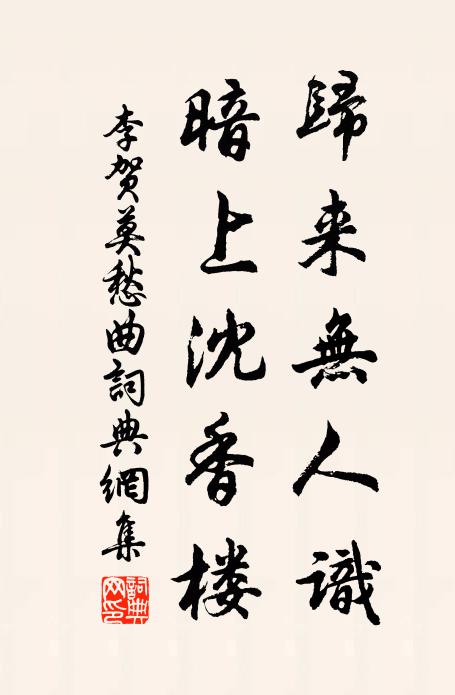 歸来無人識
暗上沈香楼
李贺莫愁曲詞典網集
詞典网印